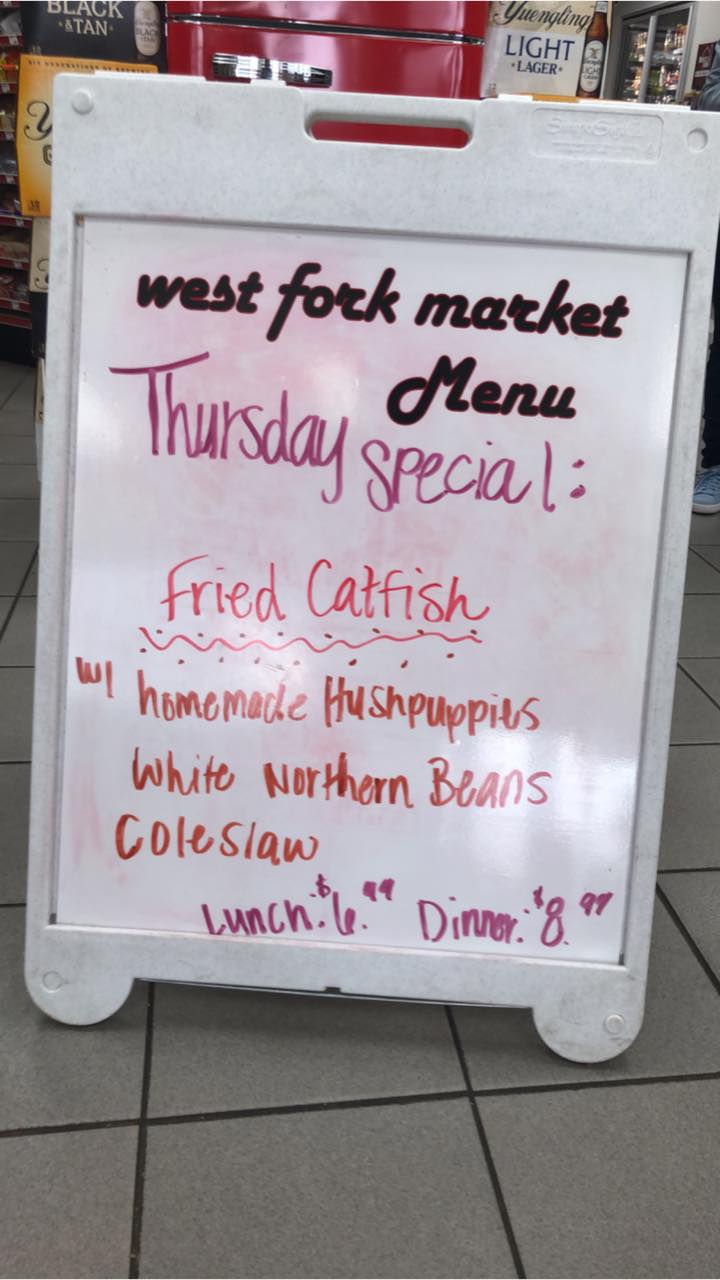 BLACK
&TAN
Yuengling
LIGHT
LAGER
west fork market
Menu
Thursday special:
Fried Catfish
w/ homemade Hushpuppies
White Northern Beans
Coleslaw
Lunch: $6.99 Dinner: $8.99